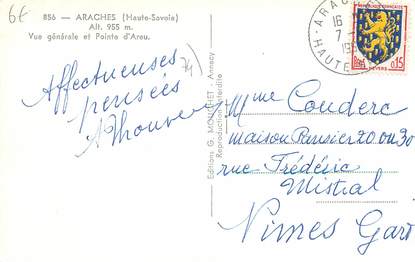 6€
856 — ARACHES (Haute-Savoie)
Alt. 955 m.
Vue générale et Pointe d'Areu.
74)
Affectueuses
pensées
Editions G. MOUCHET - Annecy
Reproduction interdite
ARAC
16
7
19
HAUTE
REPUBLIQUE FRANÇAISE
0,15
NEVERS
Mme Couderc
maison Pansier 20 00 30
rue Frédéric
Mistral
Nimes Gard